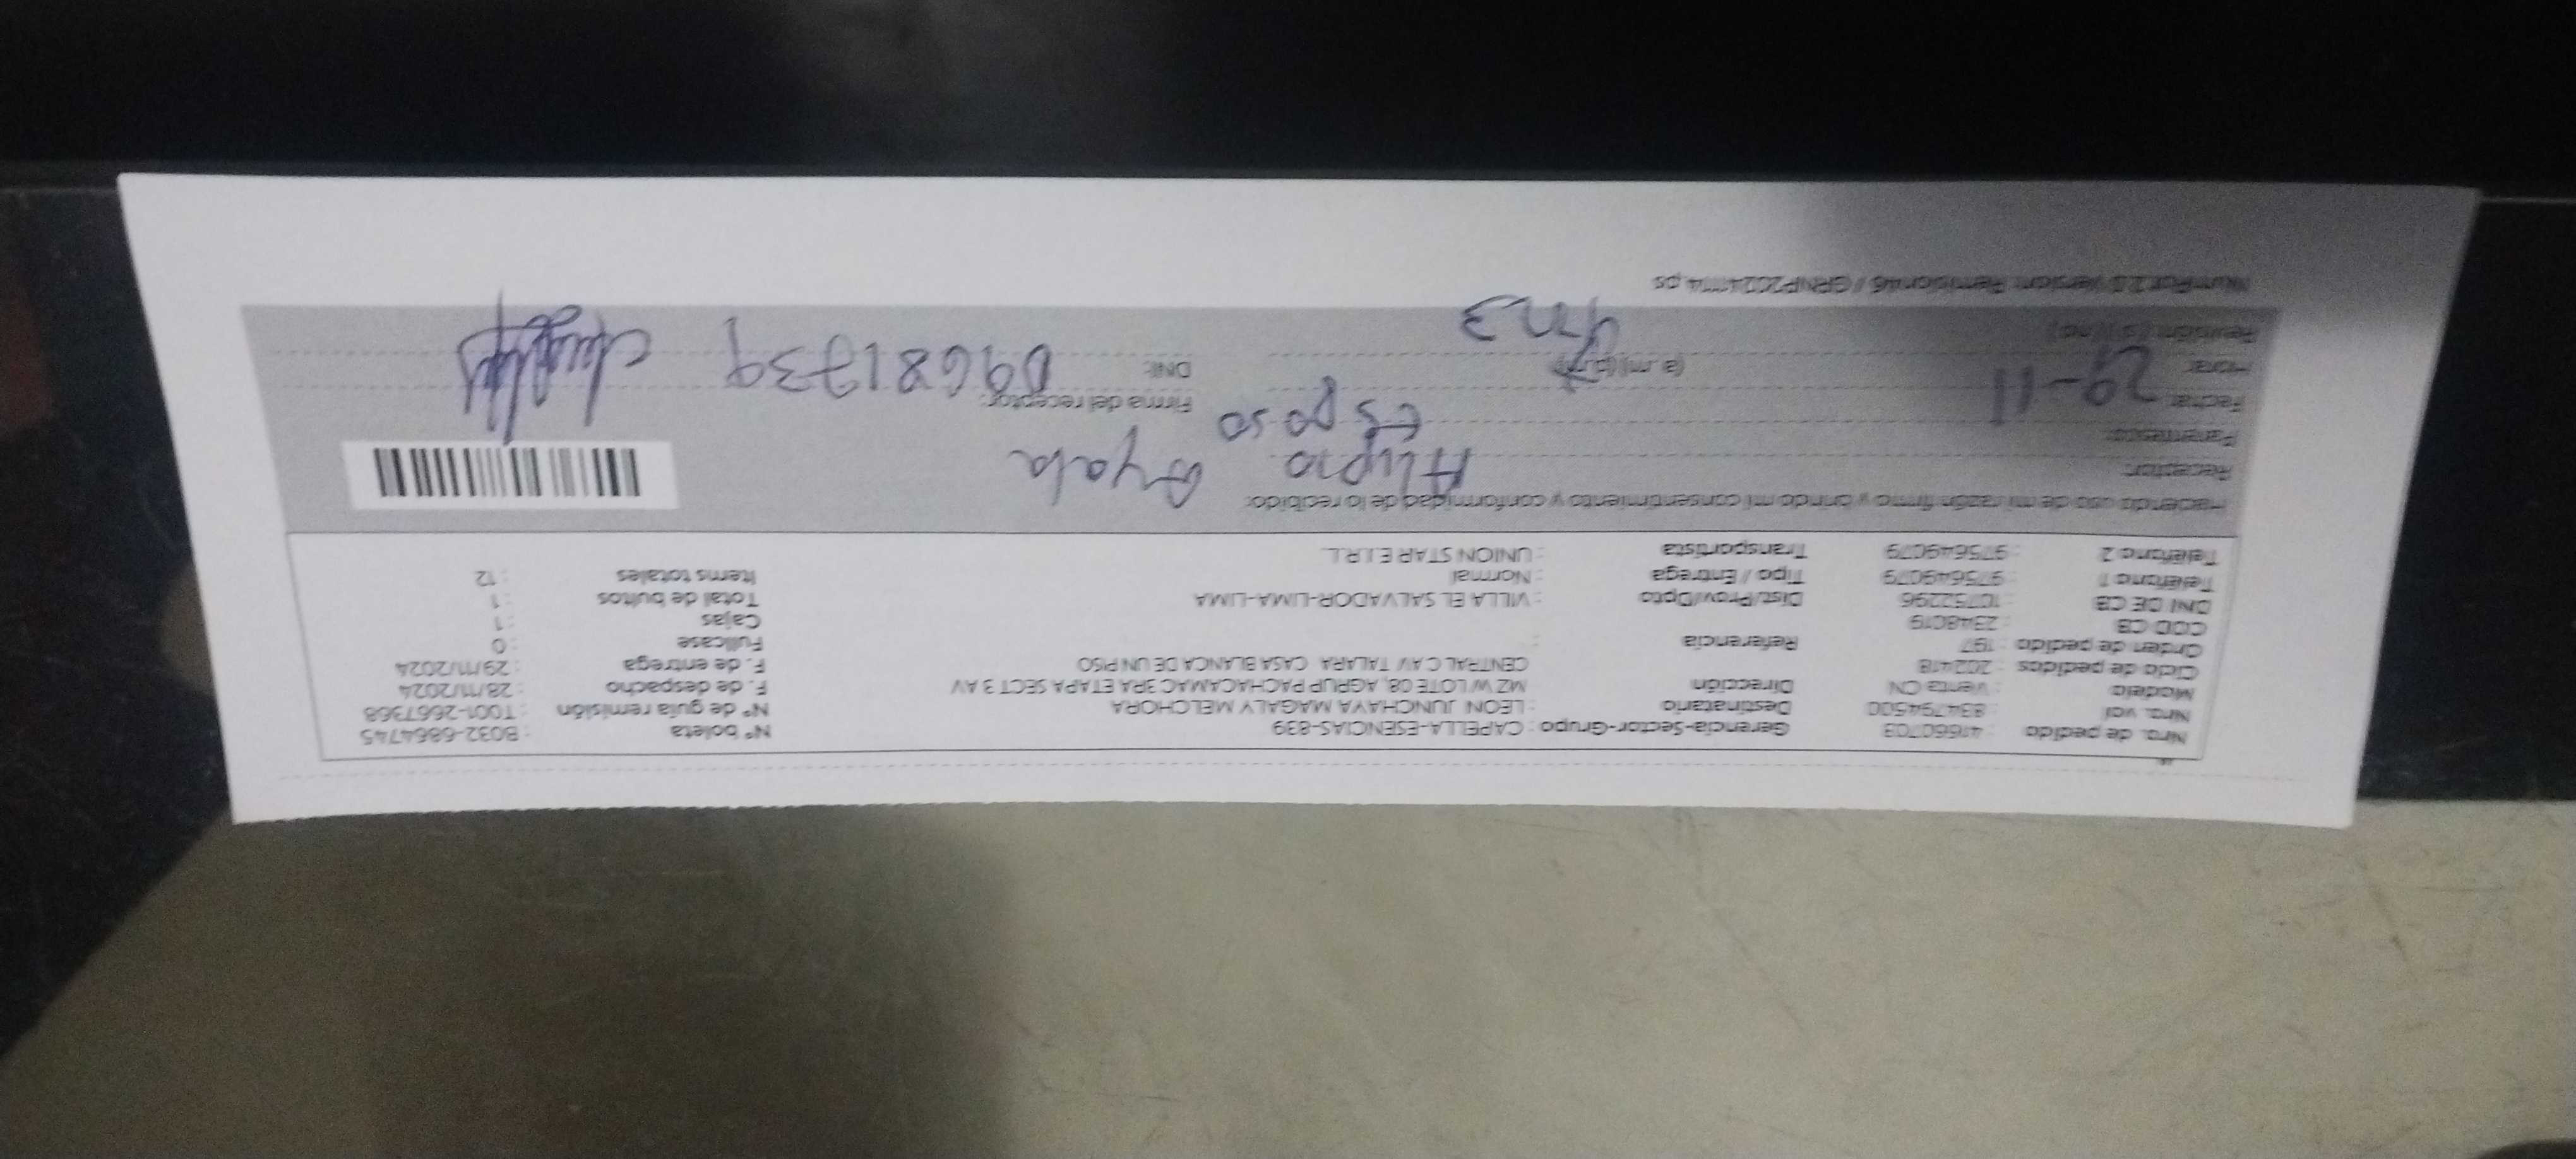 Nro. de pedido : 41660703 Gerencia-Sector-Grupo : CAPELLA-ESENCIAS-839 N° boleta : B032-6864745
Nro. val : 834794500 Destinatario : LEON JUNCHAYA MAGALY MELCHORA N° de guía remisión : T001-2667368
Modelo : Venta CN Dirección MZ W LOTE 08, AGRUP PACHACAMAC 3RA ETAPA SECT 3 AV F. de despacho : 28/11/2024
Ciclo de pedidos : 202418 CENTRAL C AV TALARA CASA BLANCA DE UN PISO F. de entrega : 29/11/2024
Orden de pedido : 197 Referencia : Fullcase : 0
COD CB : 2348019 Cajas : 1
DNI DE CB : 10752296 Dist/Prov/Dpto : VILLA EL SALVADOR-LIMA-LIMA Total de bultos : 1
Teléfono 1 : 975649079 Tipo / Entrega : Normal Items totales : 12
Teléfono 2 : 975649079 Transportista : UNION STAR E.I.R.L.
Haciendo uso de mi razón firmo y brindo mi consentimiento y conformidad de lo recibido:
Receptor: Alipio Ayala
Parentesco: Esposo
Fecha: 29-11 Firma del receptor:
Hora: (a.m) (p.m) DNI: 09681739
Revisión: (si) (no)
NumRot 2.0 Version: Remision46 / GRNP20241114.ps